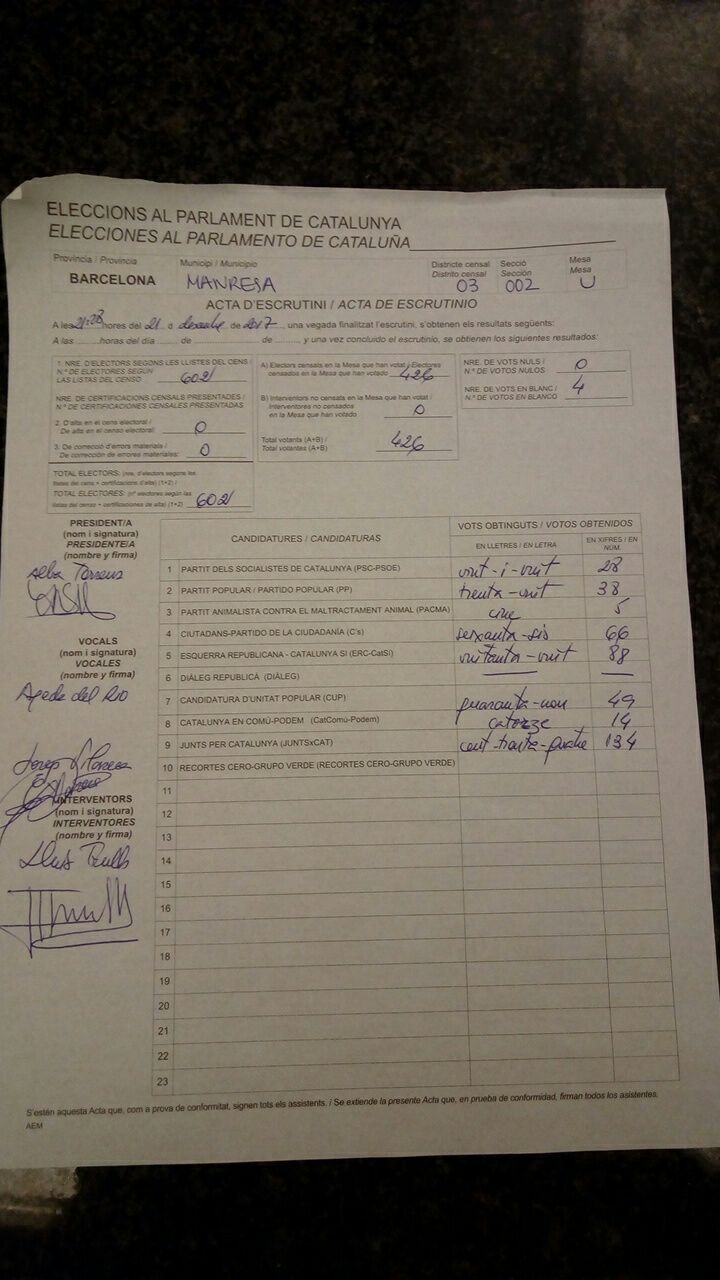 ELECCIONS AL PARLAMENT DE CATALUNYA
ELECCIONES AL PARLAMENTO DE CATALUÑA
Província / Provincia Municipi / Municipio Districte censal Secció Mesa
Distrito censal Sección Mesa
BARCELONA MANRESA 03 002 U
ACTA D'ESCRUTINI / ACTA DE ESCRUTINIO
A les 21:28 hores del 21 d desembre de 2017, una vegada finalitzat l'escrutini, s'obtenen els resultats següents:
A las ........ horas del día ...... de .................... de .........., y una vez concluido el escrutinio, se obtienen los siguientes resultados:
1. NRE. D'ELECTORS SEGONS LES LLISTES DEL CENS /
N.º DE ELECTORES SEGÚN
LAS LISTAS DEL CENSO 602
NRE. DE CERTIFICACIONS CENSALS PRESENTADES /
N.º DE CERTIFICACIONES CENSALES PRESENTADAS
2. D'alta en el cens electoral /
De alta en el censo electoral: 0
3. De correcció d'errors materials /
De corrección de errores materiales: 0
TOTAL ELECTORS: (nre. d'electors segons les
llistes del cens + certificacions d'alta) (1+2) /
TOTAL ELECTORES: (nº electores según las
listas del censo + certificaciones de alta) (1+2) 602
A) Electors censats en la Mesa que han votat / Electores
censados en la Mesa que han votado 426
B) Interventors no censats en la Mesa que han votat /
Interventores no censados
en la Mesa que han votado 0
Total votants (A+B) /
Total votantes (A+B) 426
NRE. DE VOTS NULS /
N.º DE VOTOS NULOS 0
NRE. DE VOTS EN BLANC /
N.º DE VOTOS EN BLANCO 4
PRESIDENT/A
(nom i signatura)
PRESIDENTE/A
(nombre y firma)
Alba Torrens
VOCALS
(nom i signatura)
VOCALES
(nombre y firma)
Agede del Rio
Josep
INTERVENTORS
(nom i signatura)
INTERVENTORES
(nombre y firma)
Lluís Trulls
CANDIDATURES / CANDIDATURAS VOTS OBTINGUTS / VOTOS OBTENIDOS
EN LLETRES / EN LETRA EN XIFRES / EN NÚM.
1 PARTIT DELS SOCIALISTES DE CATALUNYA (PSC-PSOE) vint-i-vuit 28
2 PARTIT POPULAR / PARTIDO POPULAR (PP) trenta-vuit 38
3 PARTIT ANIMALISTA CONTRA EL MALTRACTAMENT ANIMAL (PACMA) cinc 5
4 CIUTADANS-PARTIDO DE LA CIUDADANÍA (C's) seixanta-sis 66
5 ESQUERRA REPUBLICANA - CATALUNYA SÍ (ERC-CatSí) vuitanta-vuit 88
6 DIÀLEG REPUBLICÀ (DIÀLEG) — —
7 CANDIDATURA D'UNITAT POPULAR (CUP) quaranta-nou 49
8 CATALUNYA EN COMÚ-PODEM (CatComú-Podem) catorze 14
9 JUNTS PER CATALUNYA (JUNTSxCAT) cent-trenta-quatre 134
10 RECORTES CERO-GRUPO VERDE (RECORTES CERO-GRUPO VERDE)
11
12
13
14
15
16
17
18
19
20
21
22
23
S'estén aquesta Acta que, com a prova de conformitat, signen tots els assistents. / Se extiende la presente Acta que, en prueba de conformidad, firman todos los asistentes.
AEM